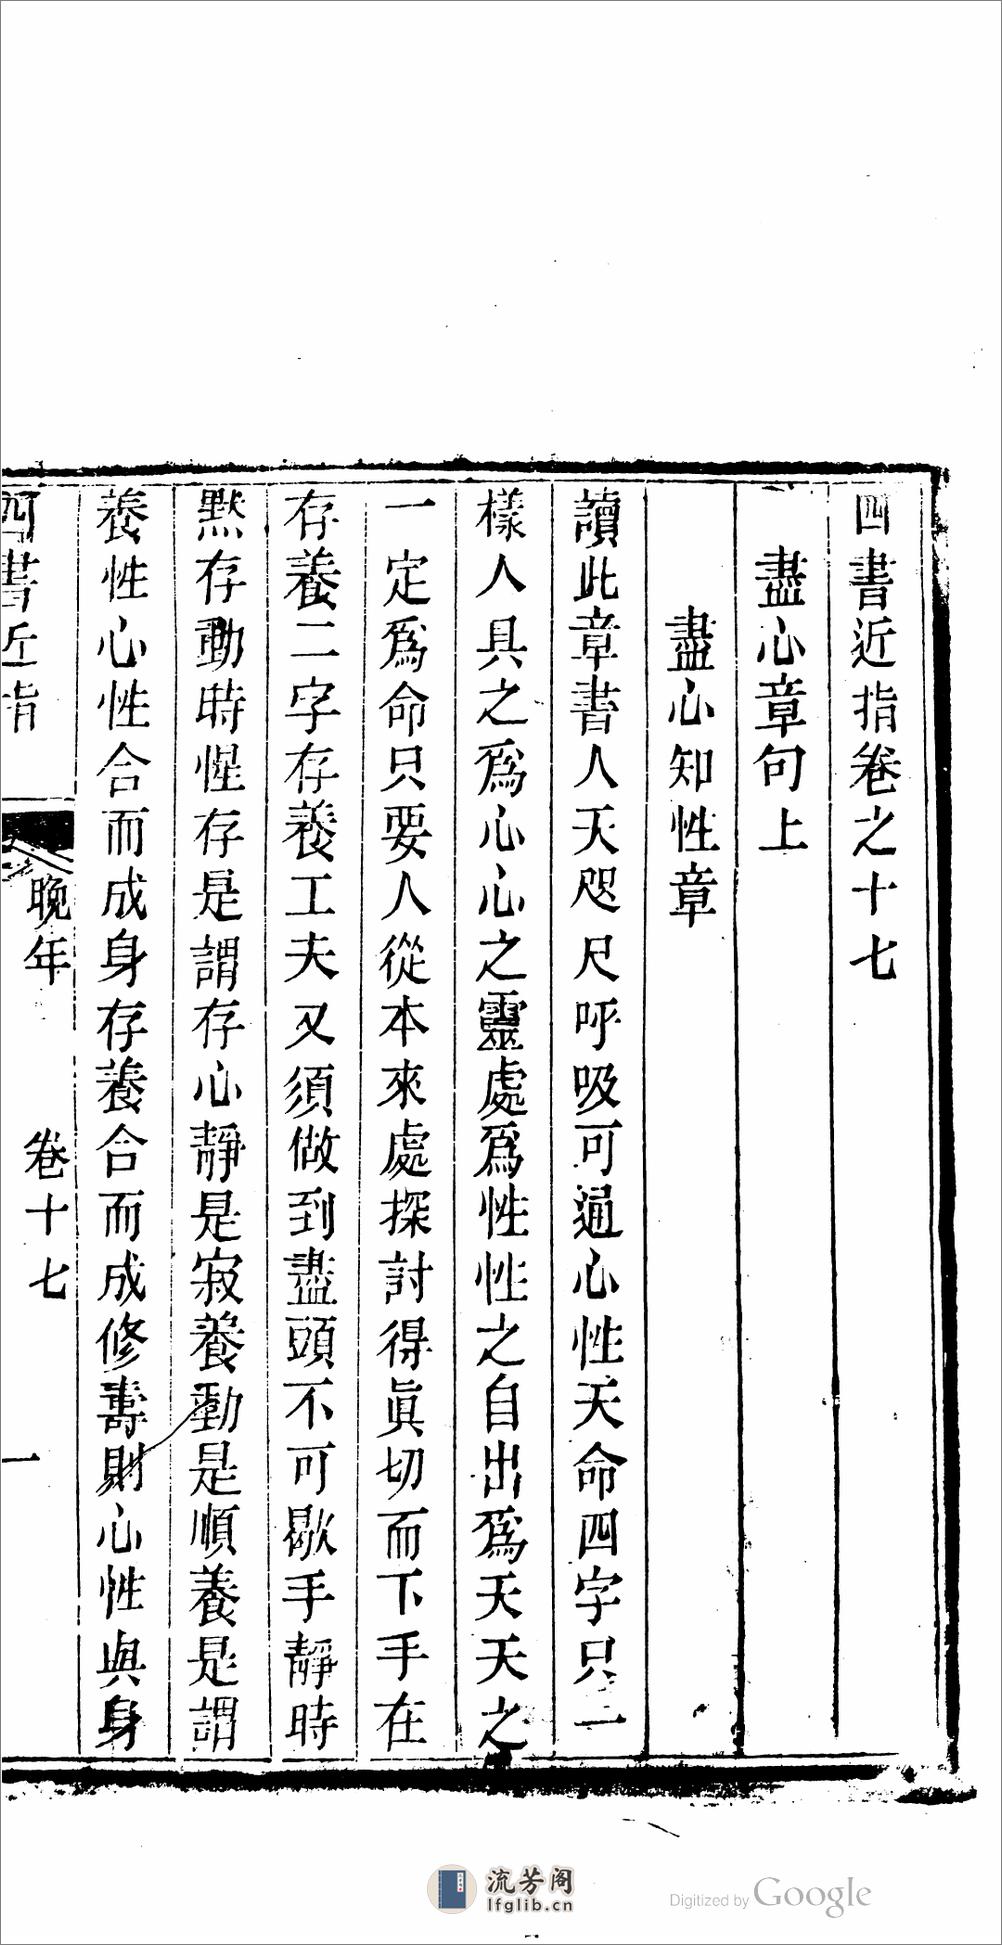 四書近指卷之十七
盡心章句上
盡心知性章
讀此章書人天咫尺呼吸可通心性天命四字只一
樣人具之爲心心之靈處爲性性之自出爲天天之
一定爲命只要人從本來處探討得眞切而下手在
存養二字存養工夫又須做到盡頭不可歇手靜時
默存動時惺存是謂存心靜是寂養動是順養是謂
養性心性合而成身存養合而成修壽則心性與身
四書近指
晚年
卷十七
一
流芳阁
lfglib.cn
Digitized by Google